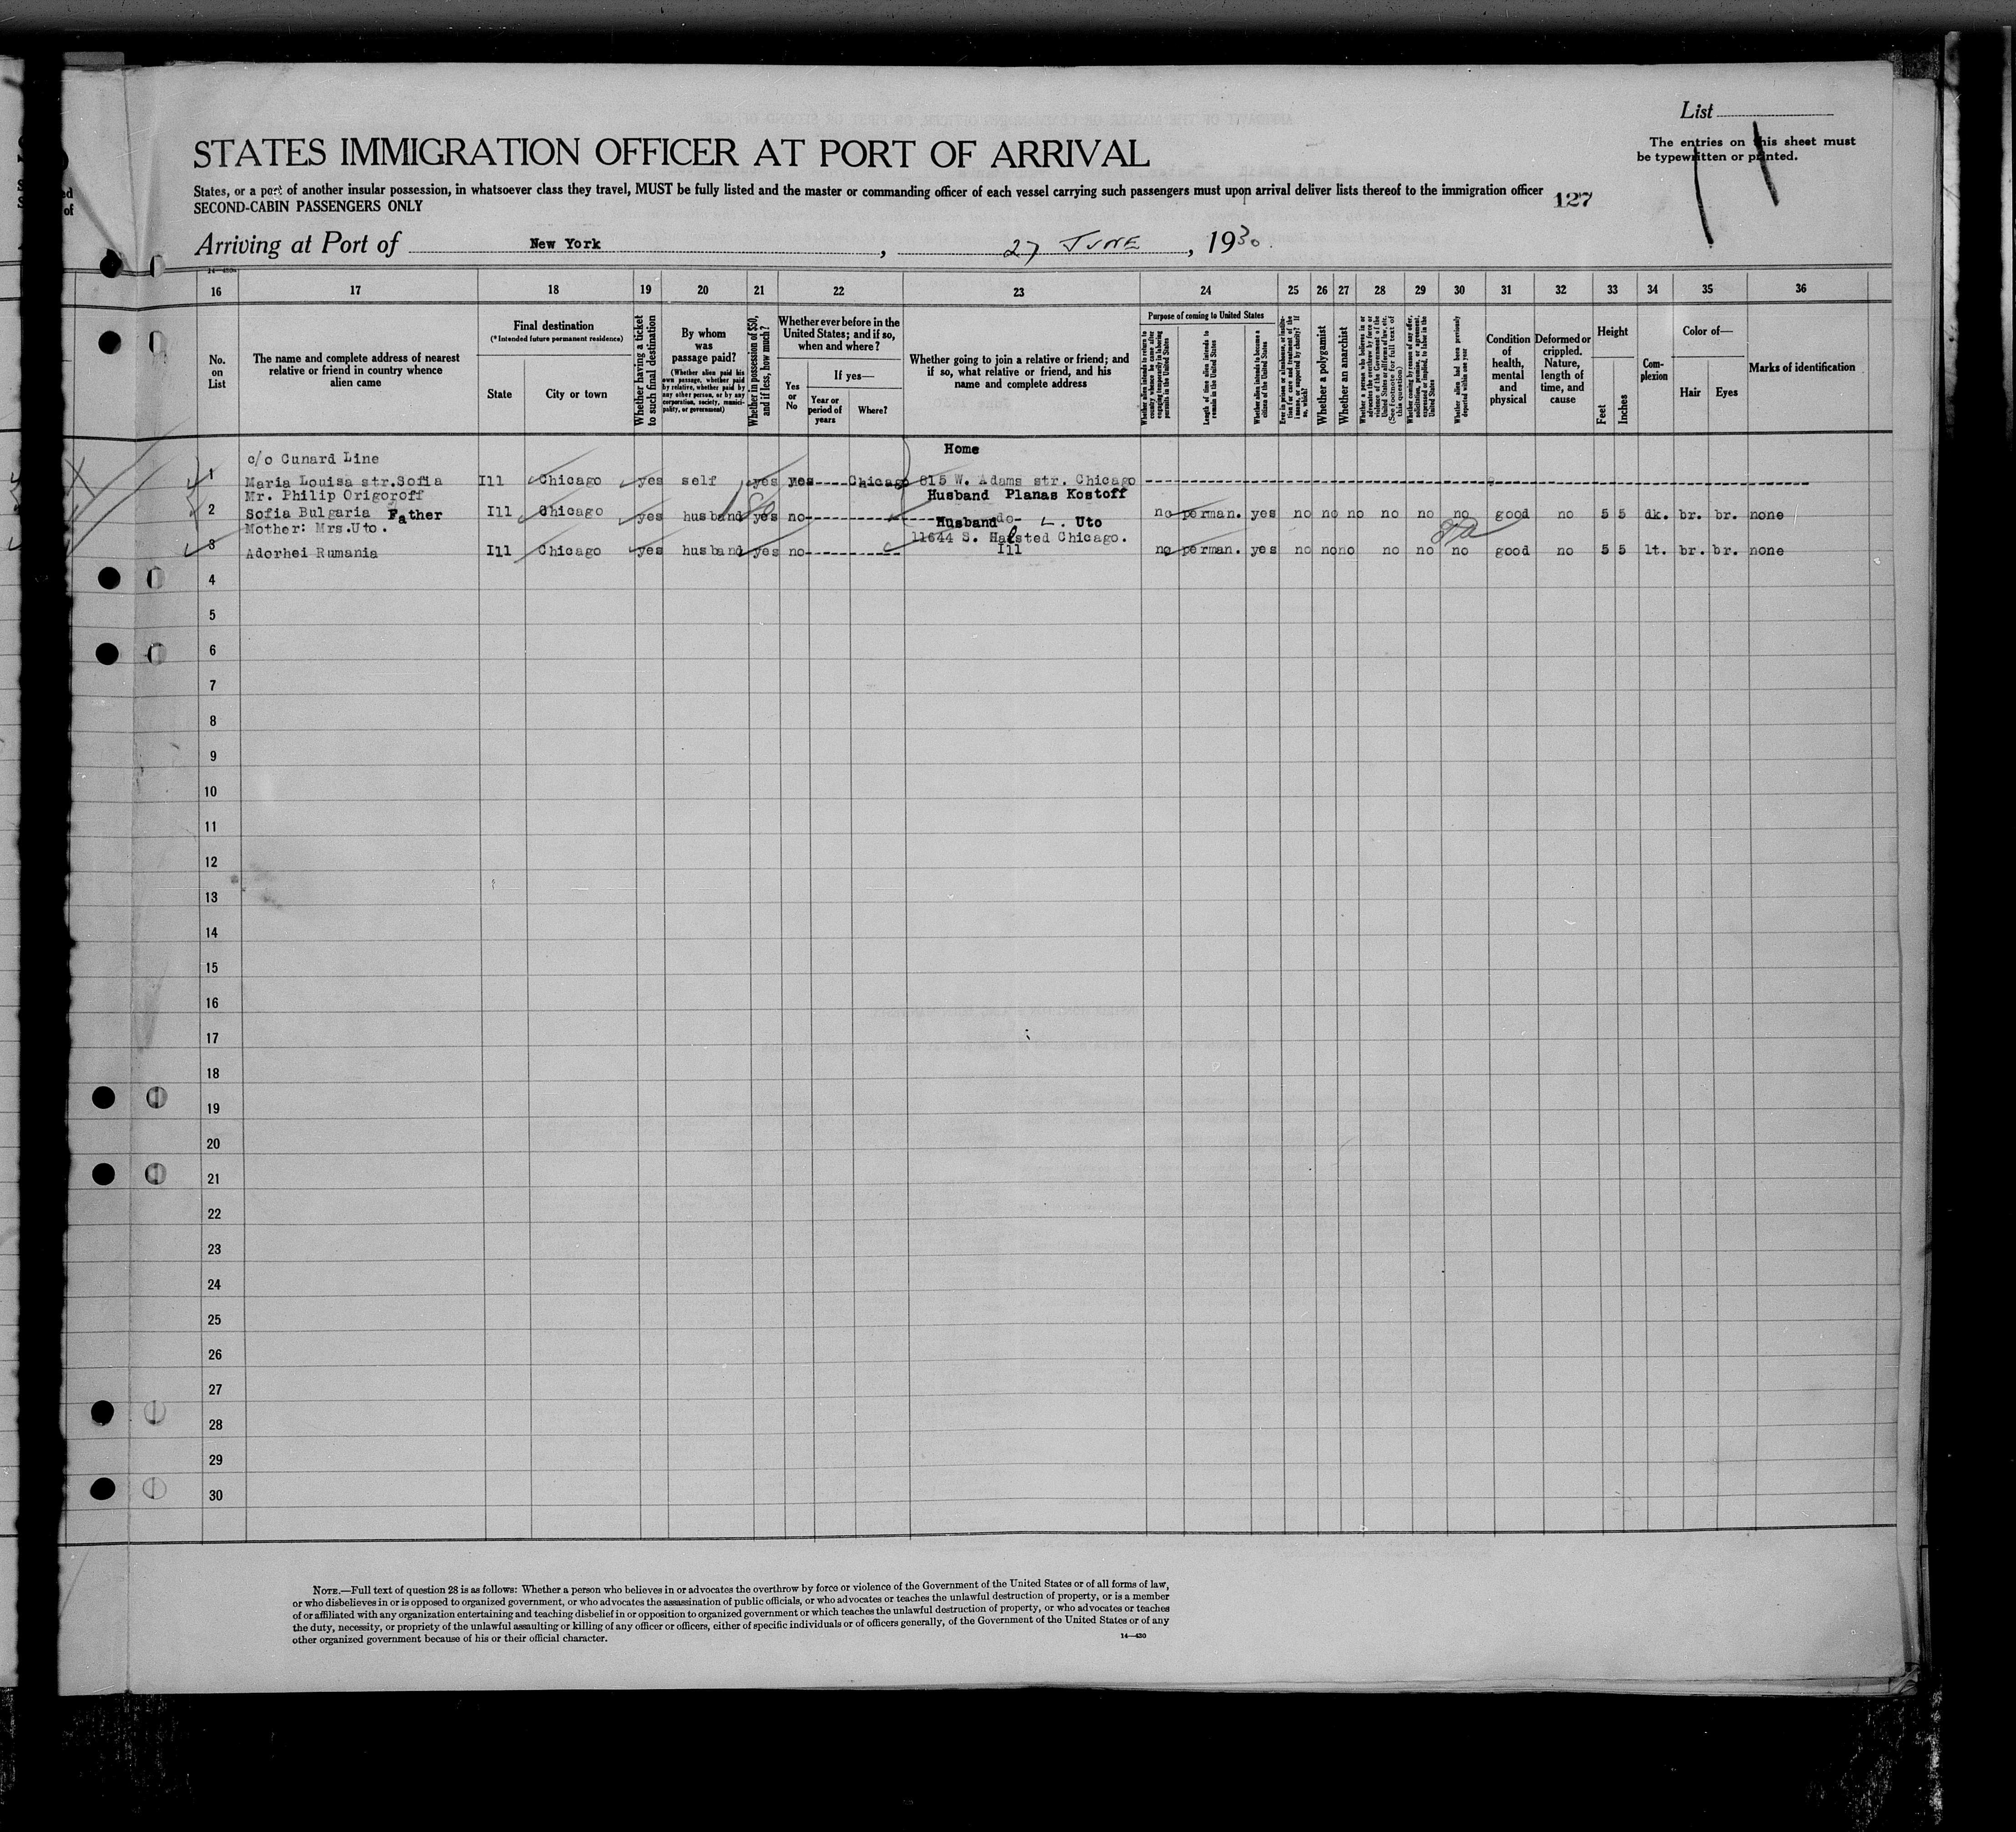 List
The entries on this sheet must
be typewritten or printed.
STATES IMMIGRATION OFFICER AT PORT OF ARRIVAL
States, or a port of another insular possession, in whatsoever class they travel, MUST be fully listed and the master or commanding officer of each vessel carrying such passengers must upon arrival deliver lists thereof to the immigration officer
SECOND-CABIN PASSENGERS ONLY
127
Arriving at Port of New York, 27 JUNE, 1930.
14—430a
16 17 18 19 20 21 22 23 24 25 26 27 28 29 30 31 32 33 34 35 36
No. on List
The name and complete address of nearest relative or friend in country whence alien came
Final destination
(*Intended future permanent residence)
State
City or town
Whether having a ticket to such final destination
By whom was passage paid?
(Whether alien paid his own passage, whether paid by relative, whether paid by any other person, or by any corporation, society, municipality, or government)
Whether in possession of $50, and if less, how much?
Whether ever before in the United States; and if so, when and where?
Yes or No
If yes—
Year or period of years
Where?
Whether going to join a relative or friend; and if so, what relative or friend, and his name and complete address
Purpose of coming to United States
Whether alien intends to return to country whence he came after engaging temporarily in laboring pursuits in the United States
Length of time alien intends to remain in the United States
Whether alien intends to become a citizen of the United States
Ever in prison or almshouse, or institution for care and treatment of the insane, or supported by charity? If so, which?
Whether a polygamist
Whether an anarchist
Whether a person who believes in or advocates the overthrow by force or violence of the Government of the United States or all forms of law, etc. (See footnote for full text of this question.)
Whether coming by reason of any offer, solicitation, promise, or agreement, expressed or implied, to labor in the United States
Whether alien had been previously deported within one year
Condition of health, mental and physical
Deformed or crippled. Nature, length of time, and cause
Height
Feet
Inches
Complexion
Color of—
Hair
Eyes
Marks of identification
c/o Cunard Line Home
1 Maria Louisa str.Sofia Ill Chicago yes self yes yes----Chicago 815 W. Adams str. Chicago
Mr. Philip Origoroff Husband Planas Kostoff
2 Sofia Bulgaria Father Ill Chicago yes husband yes no -do- no perman. yes no no no no no no good no 5 5 dk. br. br. none
Mother: Mrs.Uto. Husband L. Uto
11644 S. Halsted Chicago.
3 Adorhei Rumania Ill Chicago yes husband yes no Ill no perman. yes no no no no no no good no 5 5 lt. br. br. none
4
5
6
7
8
9
10
11
12
13
14
15
16
17
18
19
20
21
22
23
24
25
26
27
28
29
30
NOTE.—Full text of question 28 is as follows: Whether a person who believes in or advocates the overthrow by force or violence of the Government of the United States or of all forms of law,
or who disbelieves in or is opposed to organized government, or who advocates the assassination of public officials, or who advocates or teaches the unlawful destruction of property, or is a member
of or affiliated with any organization entertaining and teaching disbelief in or opposition to organized government or which teaches the unlawful destruction of property, or who advocates or teaches
the duty, necessity, or propriety of the unlawful assaulting or killing of any officer or officers, either of specific individuals or of officers generally, of the Government of the United States or of any
other organized government because of his or their official character.
14—430